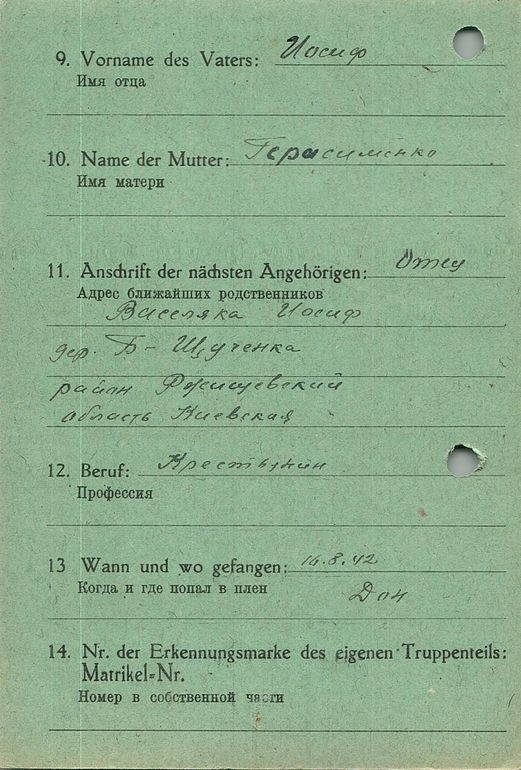 9. Vorname des Vaters: Иосиф
Имя отца
10. Name der Mutter: Герасименко
Имя матери
11. Anschrift der nächsten Angehörigen: Отец
Адрес ближайших родственников
Васеляка Иосиф
дер. Б-Щученка
район Ржищевский
область Киевская
12. Beruf: Крестьянин
Профессия
13 Wann und wo gefangen: 16.8.42
Когда и где попал в плен Дон
14. Nr. der Erkennungsmarke des eigenen Truppenteils:
Matrikel=Nr.
Номер в собственной части